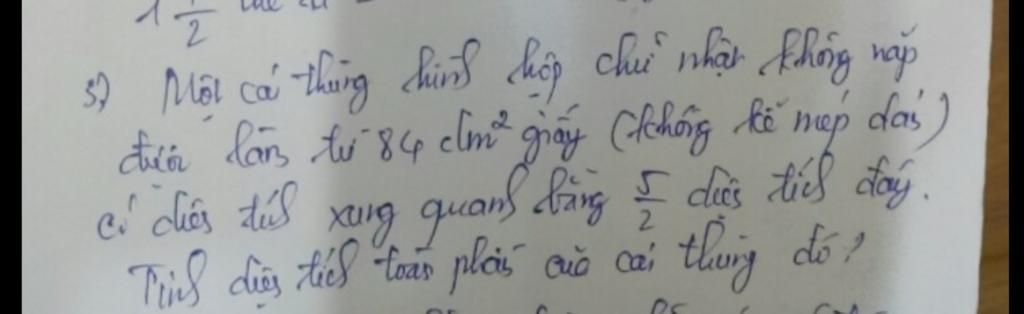 1 1/2
5) Một cái thùng hình hộp chữ nhật không nắp
được làm từ 84 dm² giấy (không kể mép dán)
có diện tích xung quanh bằng 5/2 diện tích đáy.
Tính diện tích toàn phần của cái thùng đó?